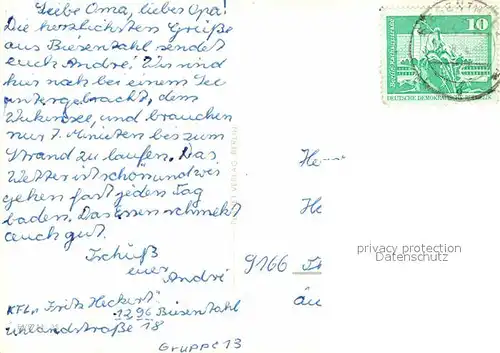 Liebe Oma, liebes Opa!
Die herzlichsten Grüße
aus Biesenzahl sendet
euch André! Wir sind
hier nah bei einem See
untergebracht, dem
Wukensee, und brauchen
nur 7 Minieten bis zum
Strand zu laufen. Das
Wetter ist schön und wir
gehen fast jeden Tag
baden. Das Essen schmekt
auch gut.
Tschüß
euer
André
KFL "Fritz Heckert"
1296 Biesenzahl
Uhlandstraße 18
Gruppe 13
10
DEUTSCHE DEMOKRATISCHE
9166
privacy protection
Datenschutz